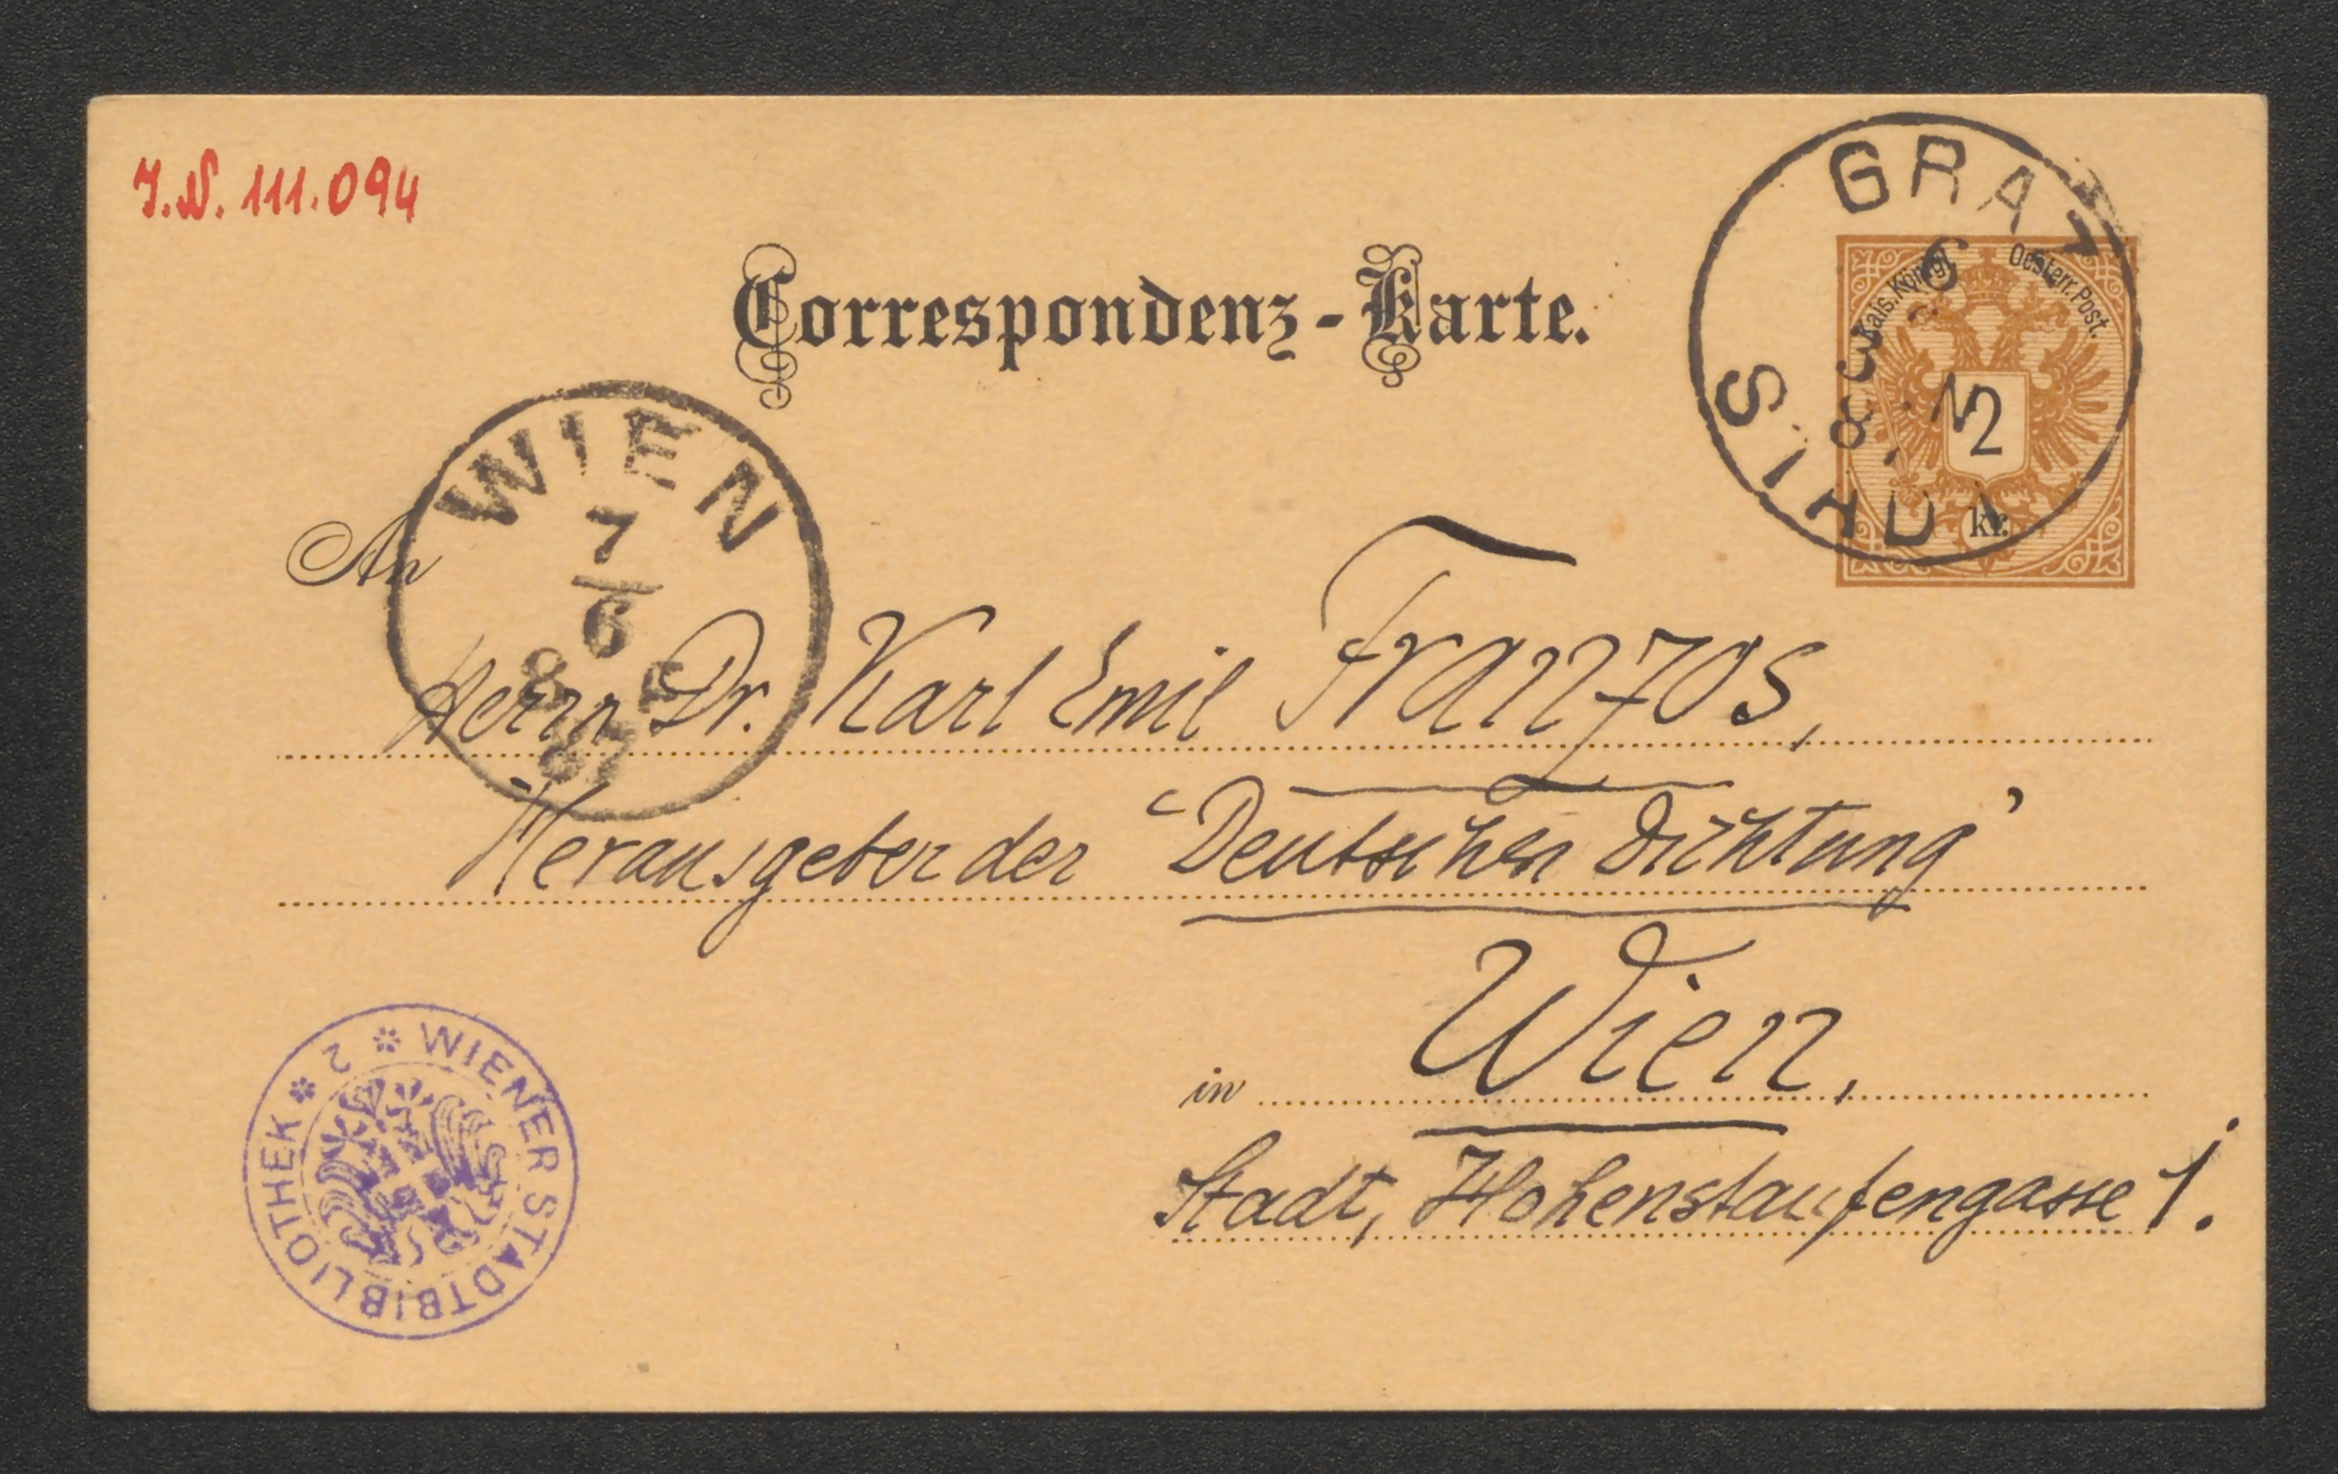 J.N. 111.094
GRAZ
STADT
Kais. Königl. Oesterr. Post.
2
kr.
Correspondenz-Karte.
WIEN
7
6
8
87
An
Herrn Dr. Karl Emil Franzos,
Herausgeber der "Deutschen Dichtung"
in Wien,
Stadt, Hohenstaufengasse 1.
WIENER STADTBIBLIOTHEK * 2 *